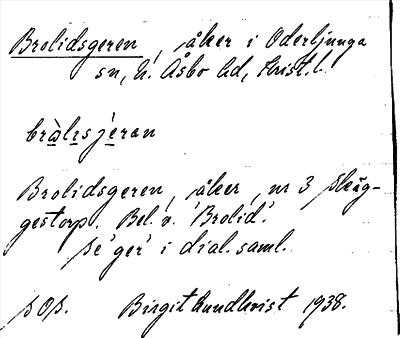 Brolidsgeren, åker i Oderljunga
sn, N. Åsbo hd, Krist. l.
bràlısjéran
Brolidsgeren, åker, nr 3 Skäg-
gestorp. Bel. v. 'Brolid'.
se 'ger' i dial. saml.
s. 08. Birgit Lundkvist 1938.